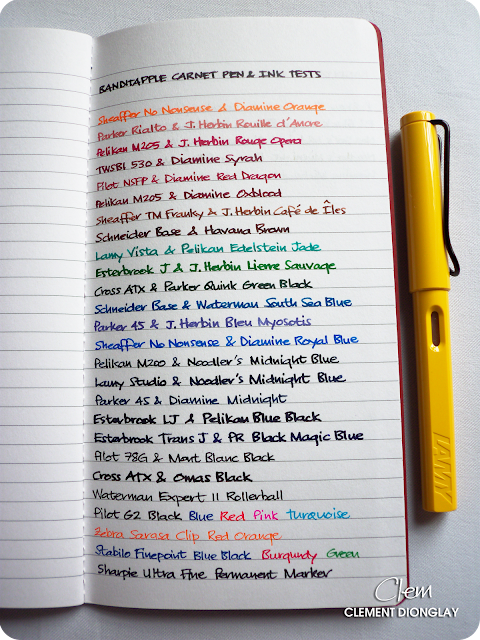 BANDITAPPLE CARNET PEN & INK TESTS
Sheaffer No Nonsense & Diamine Orange
Parker Rialto & J. Herbin Rouille d'Ancre
Pelikan M205 & J. Herbin Rouge Opera
TWSBI 530 & Diamine Syrah
Pilot NSFP & Diamine Red Dragon
Pelikan M205 & Diamine Oxblood
Sheaffer TM Franky & J. Herbin Café de Îles
Schneider Base & Havana Brown
Lamy Vista & Pelikan Edelstein Jade
Esterbrook J & J. Herbin Lierre Sauvage
Cross ATX & Parker Quink Green Black
Schneider Base & Waterman South Sea Blue
Parker 45 & J. Herbin Bleu Myosotis
Sheaffer No Nonsense & Diamine Royal Blue
Pelikan M200 & Noodler's Midnight Blue
Lamy Studio & Noodler's Midnight Blue
Parker 45 & Diamine Midnight
Esterbrook LJ & Pelikan Blue Black
Esterbrook Trans J & PR Black Magic Blue
Pilot 78G & Mont Blanc Black
Cross ATX & Omas Black
Waterman Expert II Rollerball
Pilot G2 Black Blue Red Pink Turquoise
Zebra Sarasa Clip Red Orange
Stabilo Finepoint Blue Black Burgundy Green
Sharpie Ultra Fine Permanent Marker
LAMY
Clem
CLEMENT DIONGLAY